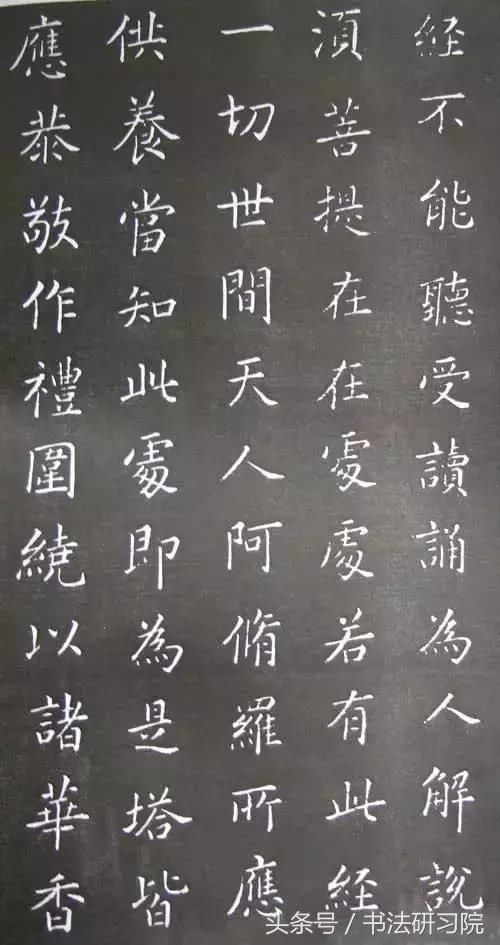 経不能聽受讀誦為人解說
湏菩提在在處處若有此経
一切世間天人阿脩羅所應
供養當知此處即為是塔皆
應恭敬作禮圍繞以諸華香
头条号／书法研习院